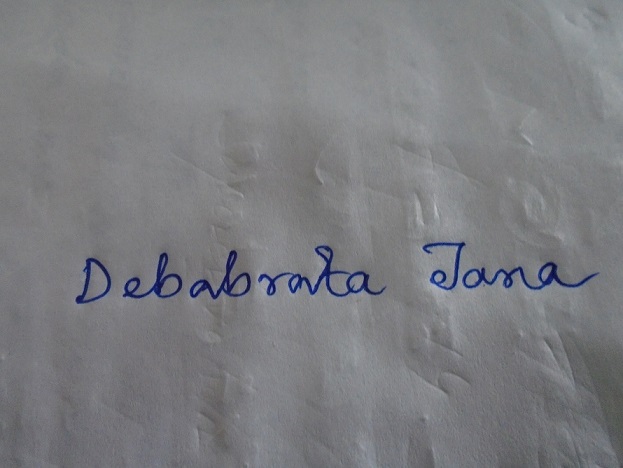 Debabrata Jana